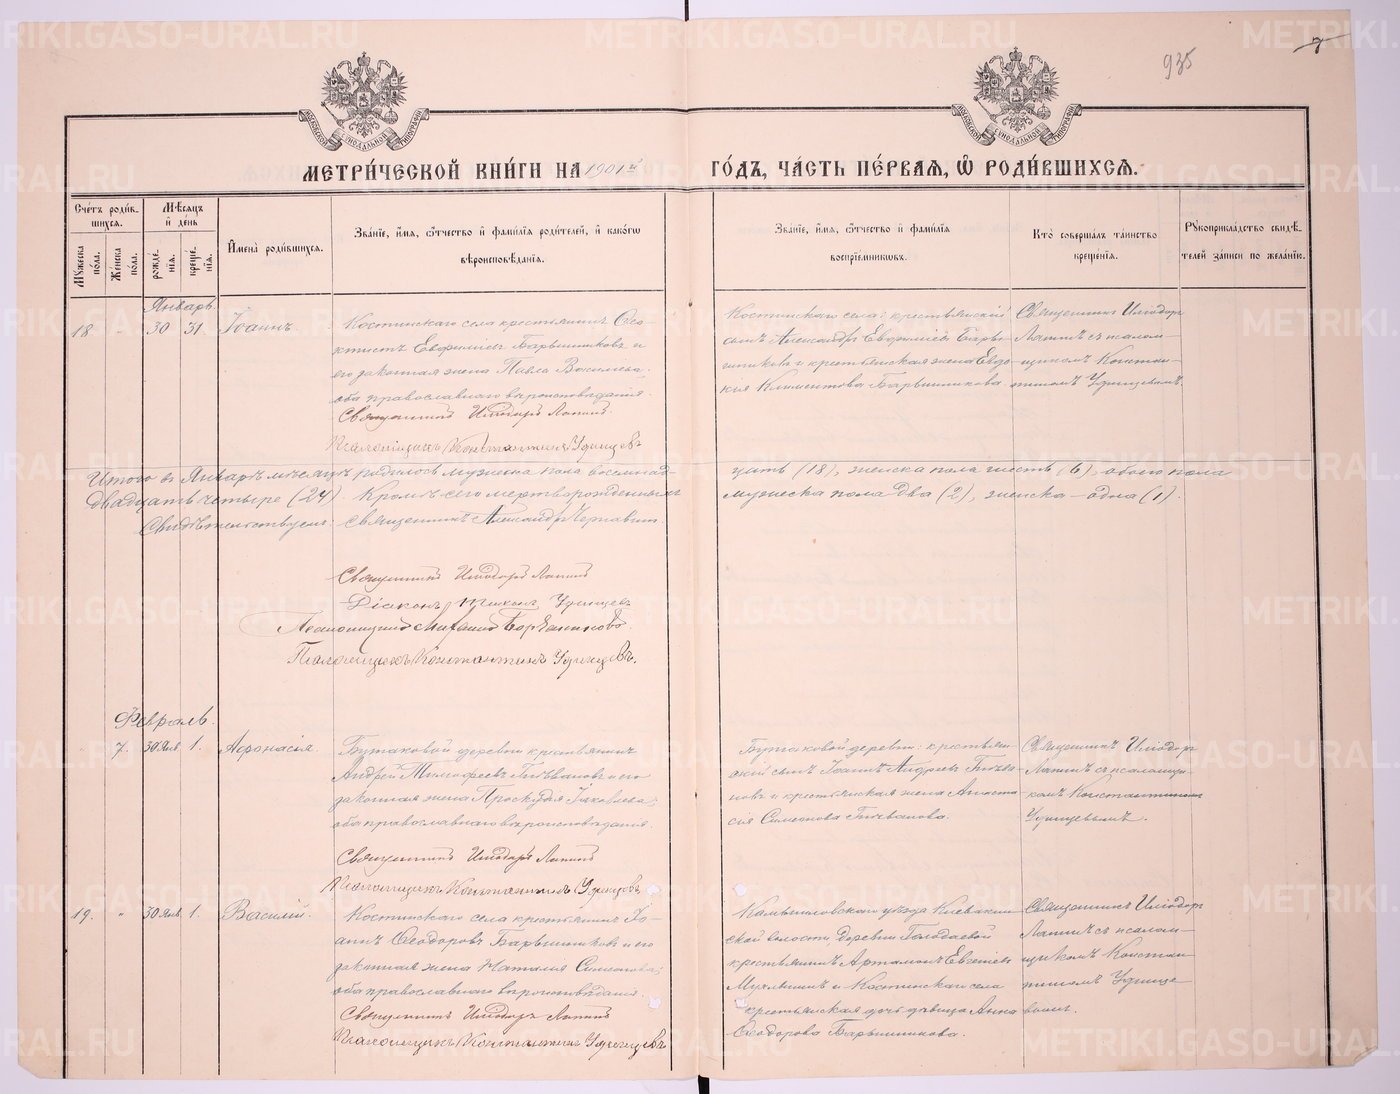 935
7
МОСКОВСКОЙ СѴНОДАЛЬНОЙ ТИПОГРАФІИ
МОСКОВСКОЙ СѴНОДАЛЬНОЙ ТИПОГРАФІИ
МЕТРИ́ЧЕСКОЙ КНИ́ГИ НА 1901й ГО́ДЪ, ЧА́СТЬ ПЕ́РВАЯ, Ѡ҆ РОДИ́ВШИХСЯ.
Сче́тъ роди́вшихся.
Му́жеска по́ла.
Же́нска по́ла.
Мѣ́сяцъ и҆ де́нь
рожде́нїя.
креще́нїя.
И҆мена̀ роди́вшихся.
Зва́нїе, и҆́мя, ѻ҆́тчество и҆ фами́лїя роди́телей, и҆ како́гѡ
вѣроисповѣ́данїя.
Зва́нїе, и҆́мя, ѻ҆́тчество и҆ фами́лїя
воспрїе́мникѡвъ.
Кто̀ соверша́лъ та́инство
креще́нїя.
Рꙋкоприкла́дство свидѣ́телей за́писи по жела́нїю.
Январь.
18. " 30 31. Іоаннъ.
Костинскаго села крестьянинъ Ѳео-
ктистъ Евфиміевъ Барышниковъ и
его законная жена Павла Васильева.
оба православнаго вѣроисповѣданія.
Священникъ Иліодоръ Лапинъ.
Псаломщикъ Константинъ Удинцевъ
Костинскаго села: крестьянскій
сынъ Александръ Евфиміевъ Бары-
шниковъ и крестьянская жена Евдо-
кія Климентова Барышникова
Священникъ Иліодоръ
Лапинъ съ псалом-
щикомъ Констан-
тиномъ Удинцевымъ.
Итого въ Январѣ мѣсяцѣ родилось мужеска пола восемнад-
цать (18), женска пола шесть (6), обоего пола
двадцать четыре (24). Кромѣ сего мертворожденныхъ
мужеска пола два (2), женска – одна (1).
Свидѣтельствуемъ: Священникъ Александръ Чернавинъ.
Священникъ Иліодоръ Лапинъ
Діаконъ Тихонъ Удинцевъ
Псаломщикъ Константинъ Удинцевъ.
Февраль.
7. 30 Янв. 1. Аѳонасія.
Бутаковой деревни крестьянинъ
Андрей Тимофеевъ Гнѣвановъ и его
законная жена Проскудія Іаковлева;
оба православнаго вѣроисповѣданія.
Священникъ Иліодоръ Лапинъ
Псаломщикъ Константинъ Удинцевъ
Бутаковой деревни: крестьян-
скій сынъ Іоаннъ Андреевъ Гнѣва-
новъ и крестьянская жена Анаста-
сія Симеонова Гнѣванова.
Священникъ Иліодоръ
Лапинъ съ псаломщи-
комъ Константиномъ
Удинцевымъ.
19. " 30 Янв. 1. Василій.
Костинскаго села крестьянинъ Іо-
аннъ Ѳеодоровъ Барышниковъ и его
законная жена Наталія Симеонова;
оба православнаго вѣроисповѣданія.
Священникъ Иліодоръ Лапинъ
Псаломщикъ Константинъ Удинцевъ
Камышловскаго уѣзда
ской волости деревни Голодаевой
крестьянинъ Артамонъ Евгеніевъ
и Костинскаго села
крестьянская дочь дѣвица Анна
Ѳеодорова Барышникова.
Священникъ Иліодоръ
Лапинъ съ псалом-
щикомъ Констан-
тиномъ Удинце-
вымъ.